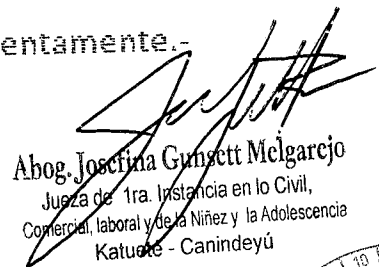 entamente.-
Abog. Josefina Gunsett Melgarejo
Jueza de 1ra. Instancia en lo Civil,
Comercial, laboral y de la Niñez y la Adolescencia
Katueté - Canindeyú